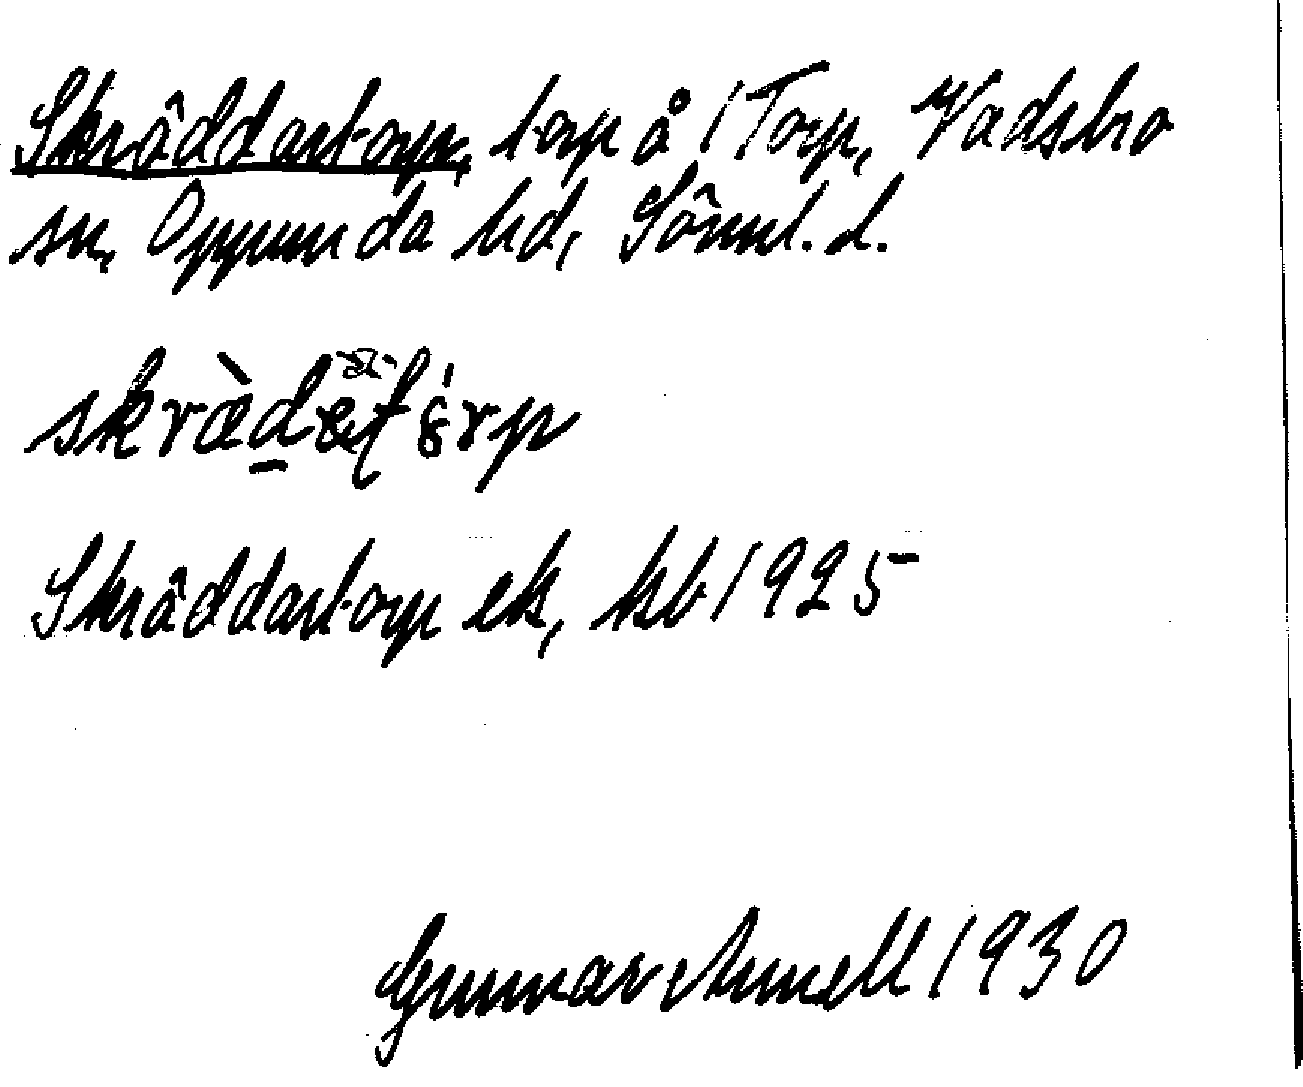 Skräddartorp, torp å 1 Torp, Vadsbro
sn, Oppunda hd, Sörml. l.
Skräddartorp ek, kb 1925
Gunnar Amnell 1930